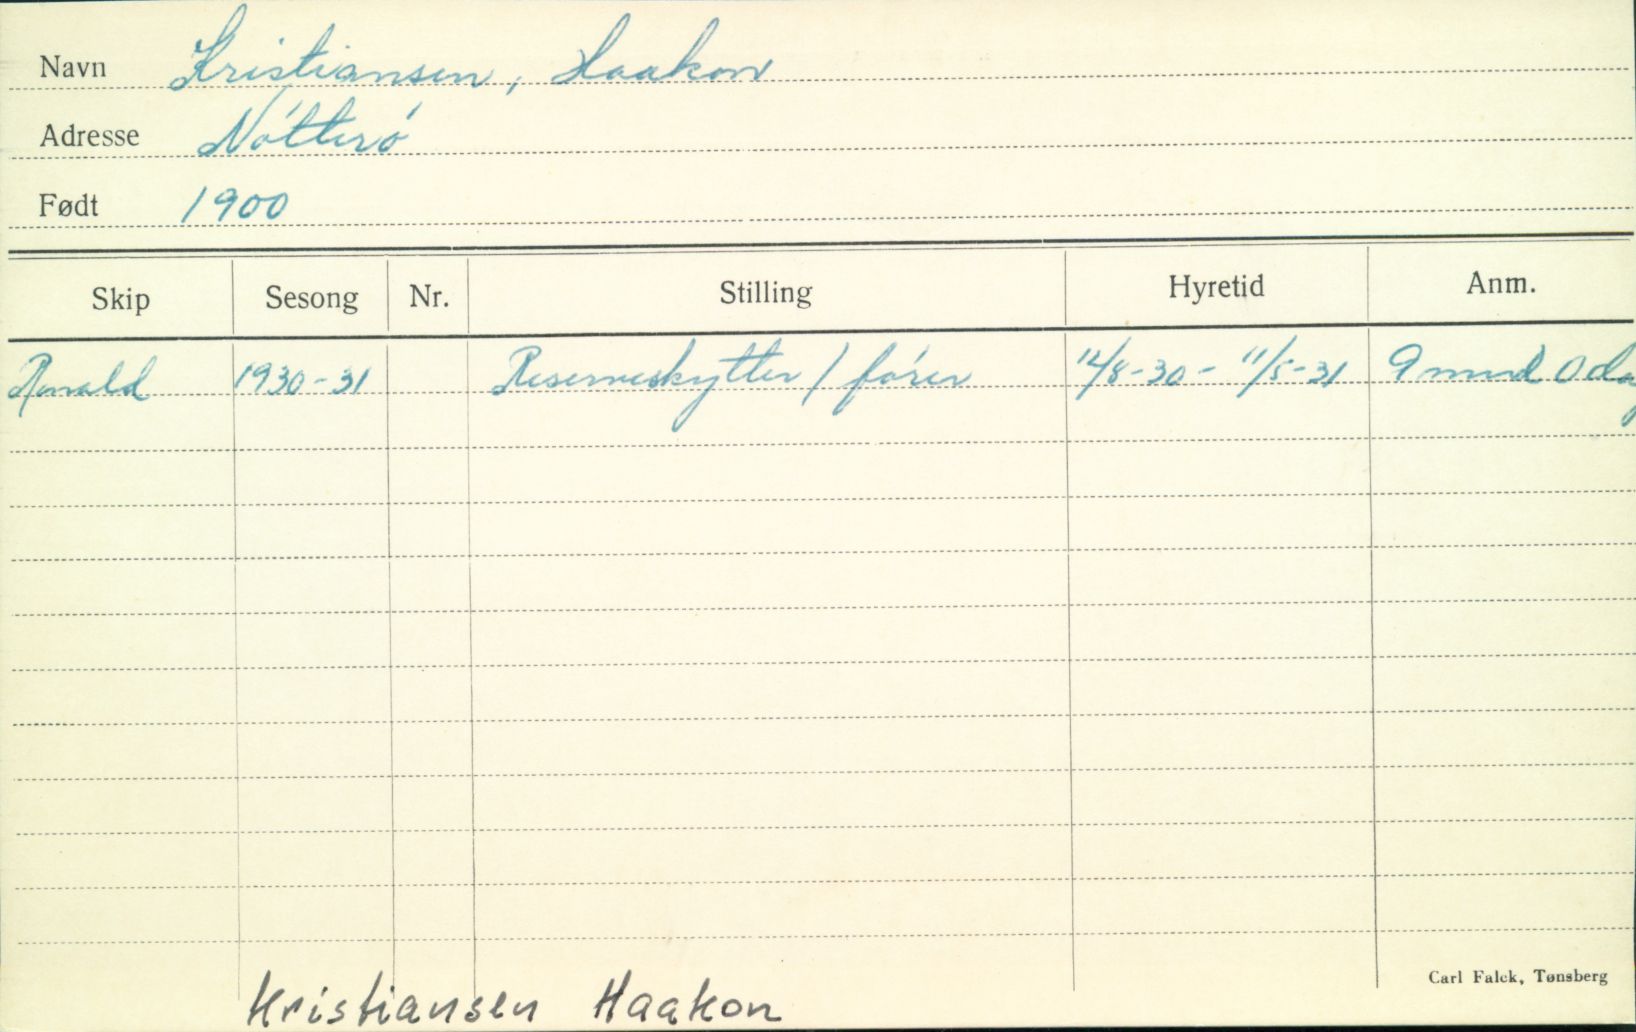 Navn Kristiansen, Haakon
Adresse Nótteró
Født 1900
Skip Sesong Nr. Stilling Hyretid Anm.
Ronald 1930-31 Reserveskytter / fórer 12/8-30 - 11/5-31 9 mnd 0 dag
Carl Falck, Tønsberg
Kristiansen Haakon